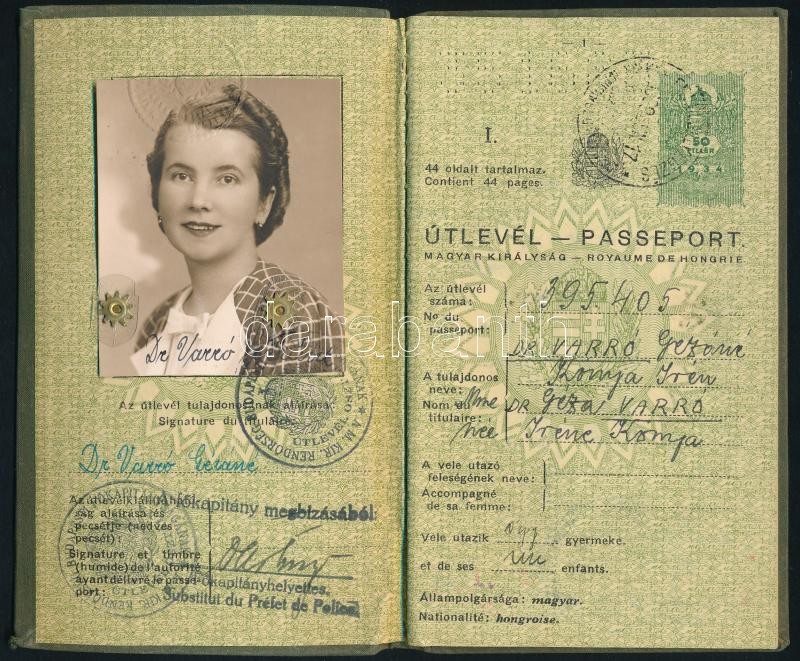 Dr Varró
Az útlevél tulajdonosának aláírása:
Signature du titulaire.
Dr Varró Gézáné
Az útlevélkiállító hatóság aláírása és pecsétje (nedves pecsét):
Signature et timbre (humide) de l'autorité ayant délivré le passeport:
A főkapitány megbizásából:
főkapitányhelyettes.
Substitut du Préfet de Police.
ÚTLEVÉL
darabanth
— 1 —
I.
50
FILLÉR
1934
44 oldalt tartalmaz.
Contient 44 pages.
ÚTLEVÉL — PASSEPORT.
MAGYAR KIRÁLYSÁG — ROYAUME DE HONGRIE
Az útlevél száma:
No du passeport:
395.405
A tulajdonos neve:
Nom du titulaire:
DR VARRÓ Gézáné
Komja Irén
Mme DR Géza VARRÓ
née Irene Komja
A vele utazó feleségének neve:
Accompagné de sa femme:
Vele utazik egy gyermeke.
et de ses un enfants.
Állampolgársága: magyar.
Nationalité: hongroise.